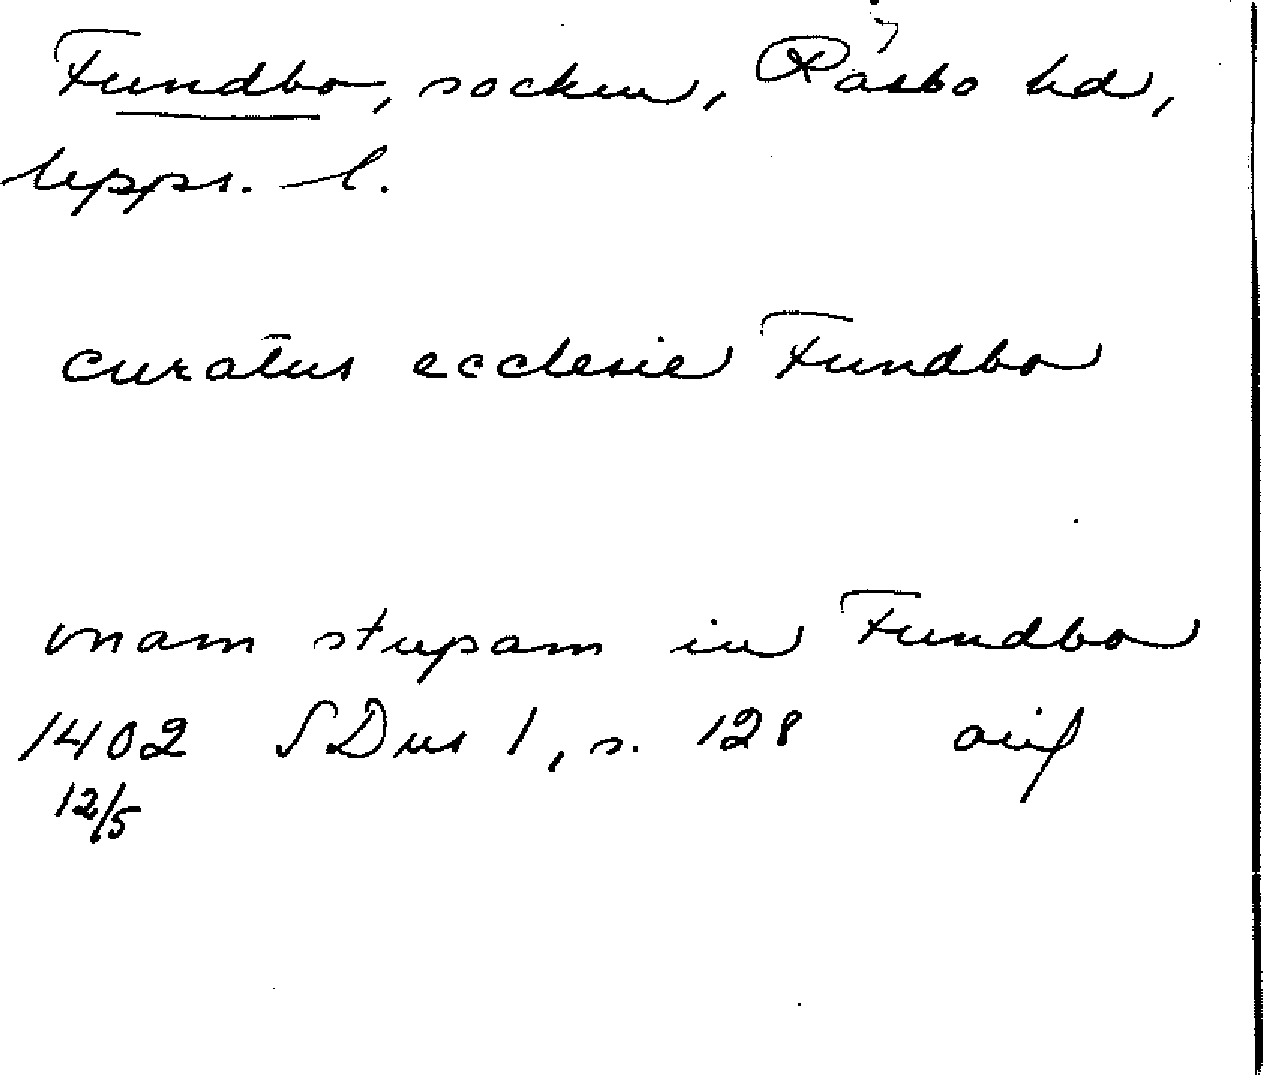 Fundbo, socken, Rasbo hd,
Upps. l.
curatus ecclesie Fundbo
vnam stupam in Fundbo
1402 SDns 1, s. 128 avs
12/5